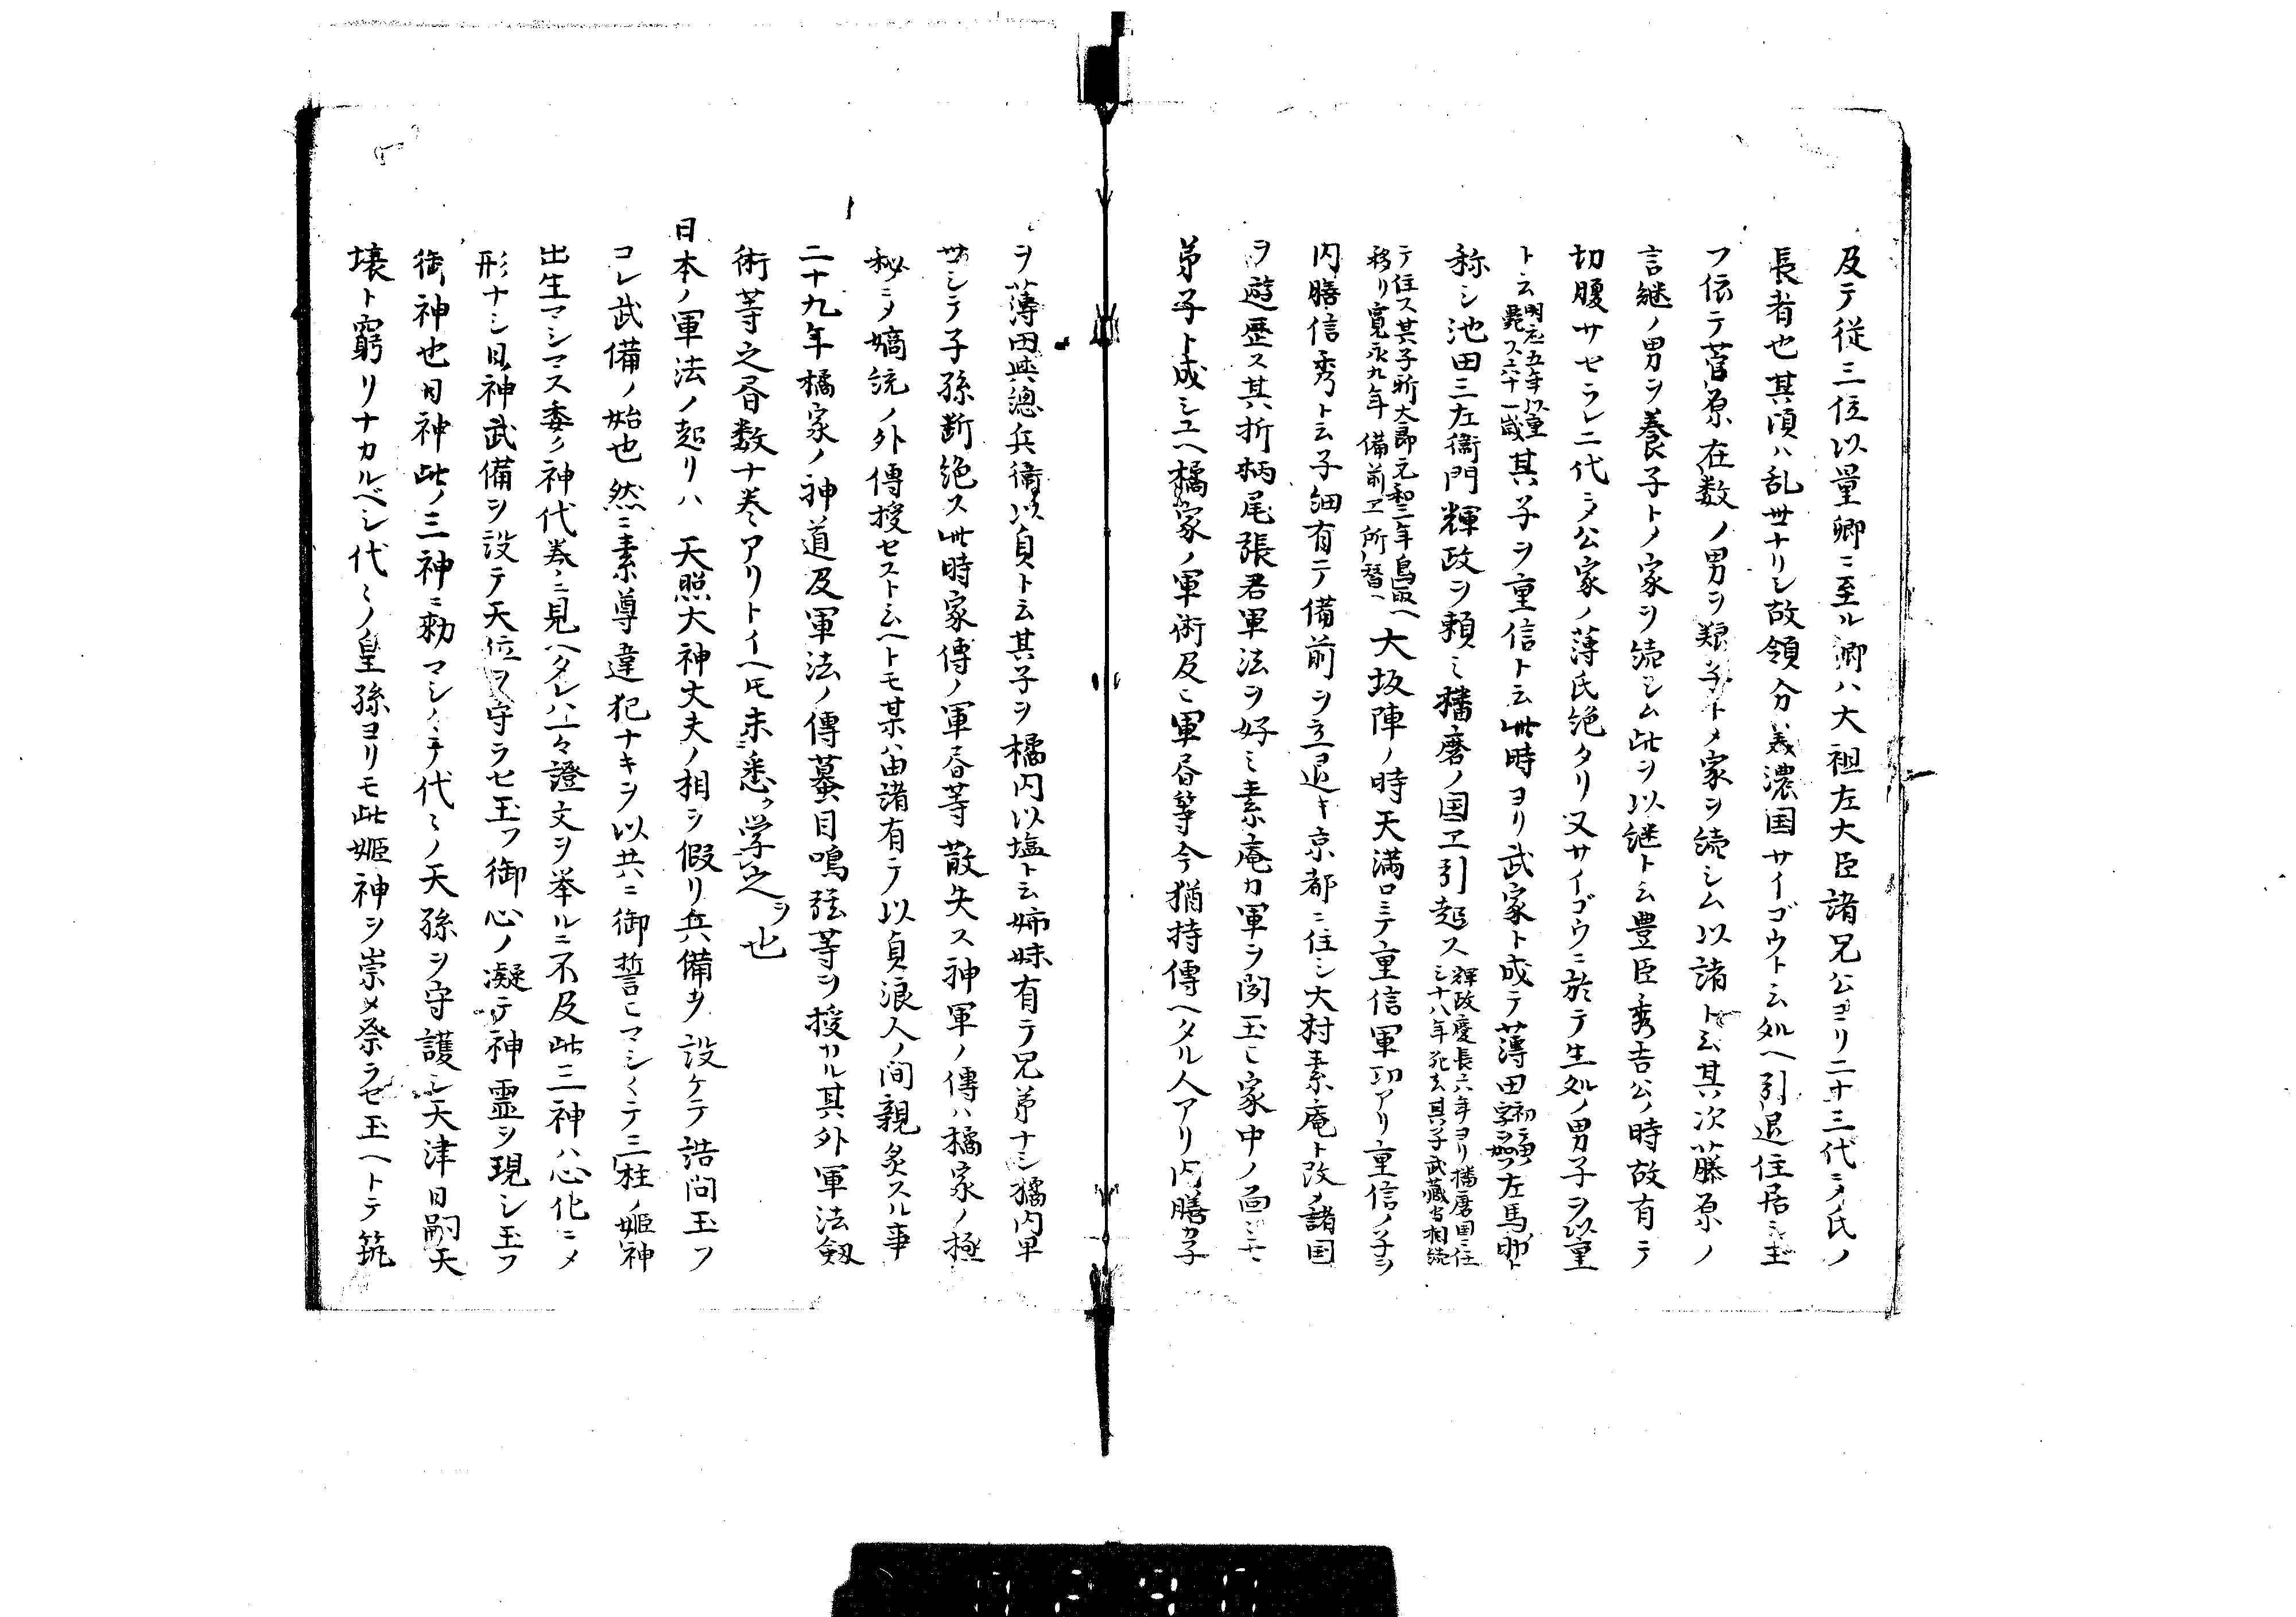 及テ従三位以量卿ニ至ル卿ハ大祖左大臣諸兄公ヨリ二十三代ニメ氏ノ
長者也其頃ハ乱世ナリシ故領分美濃国サイゴウト云処ヘ引退住居シ玉
フ依テ菅原在数ノ男ヲ猶子トメ家ヲ続シム以諸ト云其次藤原ノ
言継ノ男ヲ養子トメ家ヲ続シム此ヲ以継ト云豊臣秀吉公ノ時故有テ
切腹サセラレ二代ニメ公家ノ薄氏絶タリ又サイゴウニ於テ生処ノ男子ヲ以重
ト云明応五年以量薨ス六十一歳其子ヲ重信ト云此時ヨリ武家ト成テ薄田初ハ薄ノ字ヲ左馬助ト
称シ池田三左衛門輝政ヲ頼ミ播磨ノ国エ引越ス輝政慶長六年ヨリ播磨国ニ住シ十八年死去其子武蔵守相続
テ住ス其子新太郎元和三年鳥取ヘ移リ寛永九年備前エ所替ヘ大坂陣ノ時天満口ニテ重信軍功アリ重信ノ子ヲ
内膳信秀ト云子細有テ備前ヲ立退キ京都ニ住シ大村素庵ト改メ諸国
ヲ遊歴ス其折柄尾張君軍法ヲ好ミ素庵カ軍ヲ聞玉ヒ家中ノ面々モ
弟子ト成シユヘ橘家ノ軍術及ヒ軍器等今猶持傳ヘタル人アリ内膳カ子
ヲ薄田與惣兵衛以貞ト云其子ヲ橘内以塩ト云姉妹有テ兄弟ナシ橘内早
世シテ子孫断絶ス此時家傳ノ軍器等散失ス神軍ノ傳ハ橘家ノ極
秘ニメ嫡統ノ外傳授セスト云ヘトモ某ハ由諸有テ以貞浪人ノ間親炙スル事
二十九年橘家ノ神道及軍法ノ傳蟇目鳴弦等ヲ授カル其外軍法剱
術等之書数十巻アリトイヘ𪜈未悉ク学之ヲ也
日本ノ軍法ノ起リハ　天照大神丈夫ノ相ヲ假リ兵備ヲ設ケテ詰問玉フ
コレ武備ノ始也然ニ素尊違犯ナキヲ以共ニ御誓ヒマシ〳〵テ三柱ノ姫神
出生マシマス委ク神代巻ニ見ヘタレハ一々證文ヲ挙ルニ不及此三神ハ心化ニメ
形ナシ日神武備ヲ設テ天位ヲ守ラセ玉フ御心ノ凝テ神霊ヲ現シ玉フ
御神也日神此ノ三神ニ勅マシ〳〵テ代々ノ天孫ヲ守護シ天津日嗣天
壌ト窮リナカルベシ代々ノ皇孫ヨリモ此姫神ヲ崇メ祭ラセ玉ヘトテ筑